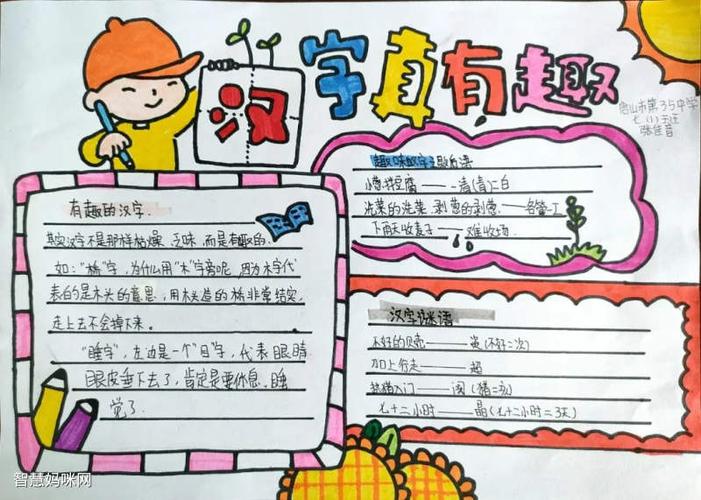 汉字真有趣
唐山市第35中学
七(1)
张佳音
有趣的汉字.
其实汉字不是那样枯燥、乏味,而是有趣的.
如:"桥"字,为什么用"木"字旁呢,因为木字代
表的是木头的意思,用木头造的桥非常结实,
走上去不会掉下来.
"睡字",左边是一个"目"字,代表眼睛
眼皮垂下去了,肯定是要休息、睡
觉了.
趣味汉字之歇后语
小葱拌豆腐——一清(青)二白
洗菜的洗菜,剥葱的剥葱.——各管一工
下雨天收麦子——难收场.
汉字谜语
不好的贝壳——资(不好=次)
行走——超
猪入门——阂(猪=亥)
七十二小时——晶(七十二小时=3天)
智慧妈咪网